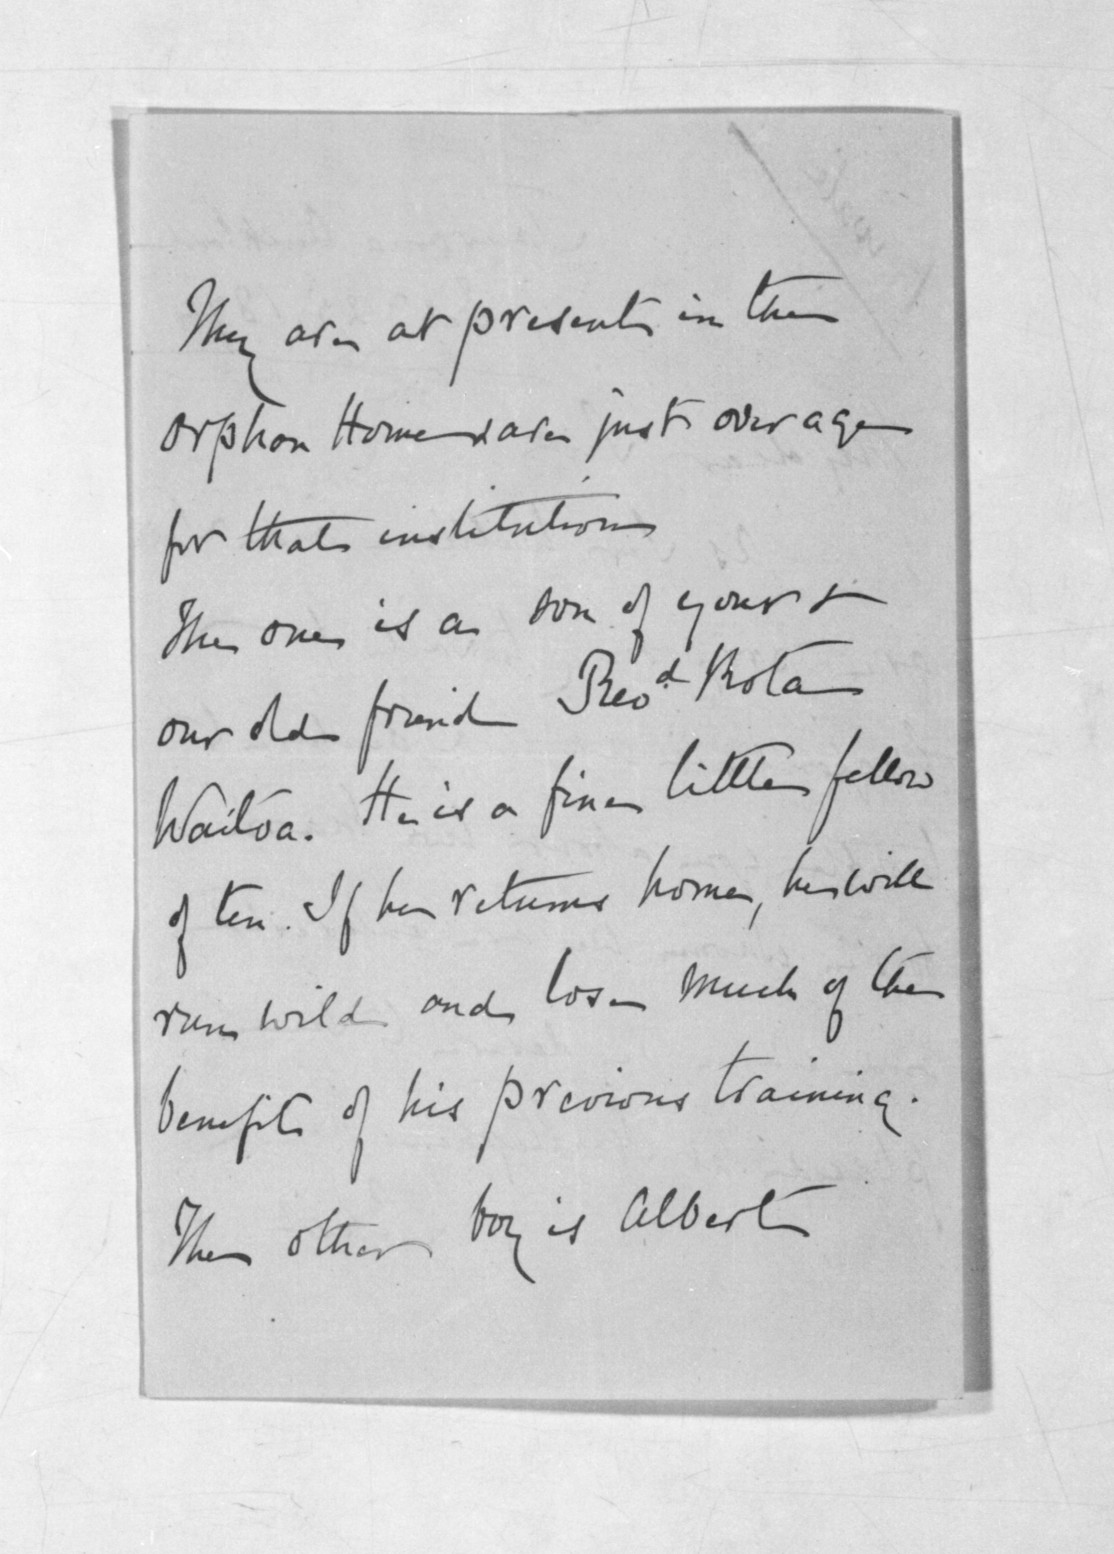 They are at present in the
Orphan Home & are just over age
for that institution
The one is a son of your &
our old friend Revd Rota
Waitoa. He is a fine little fellow
of ten. If he returns home, he will
run wild and lose much of the
benefit of his previous training.
The other boy is Albert